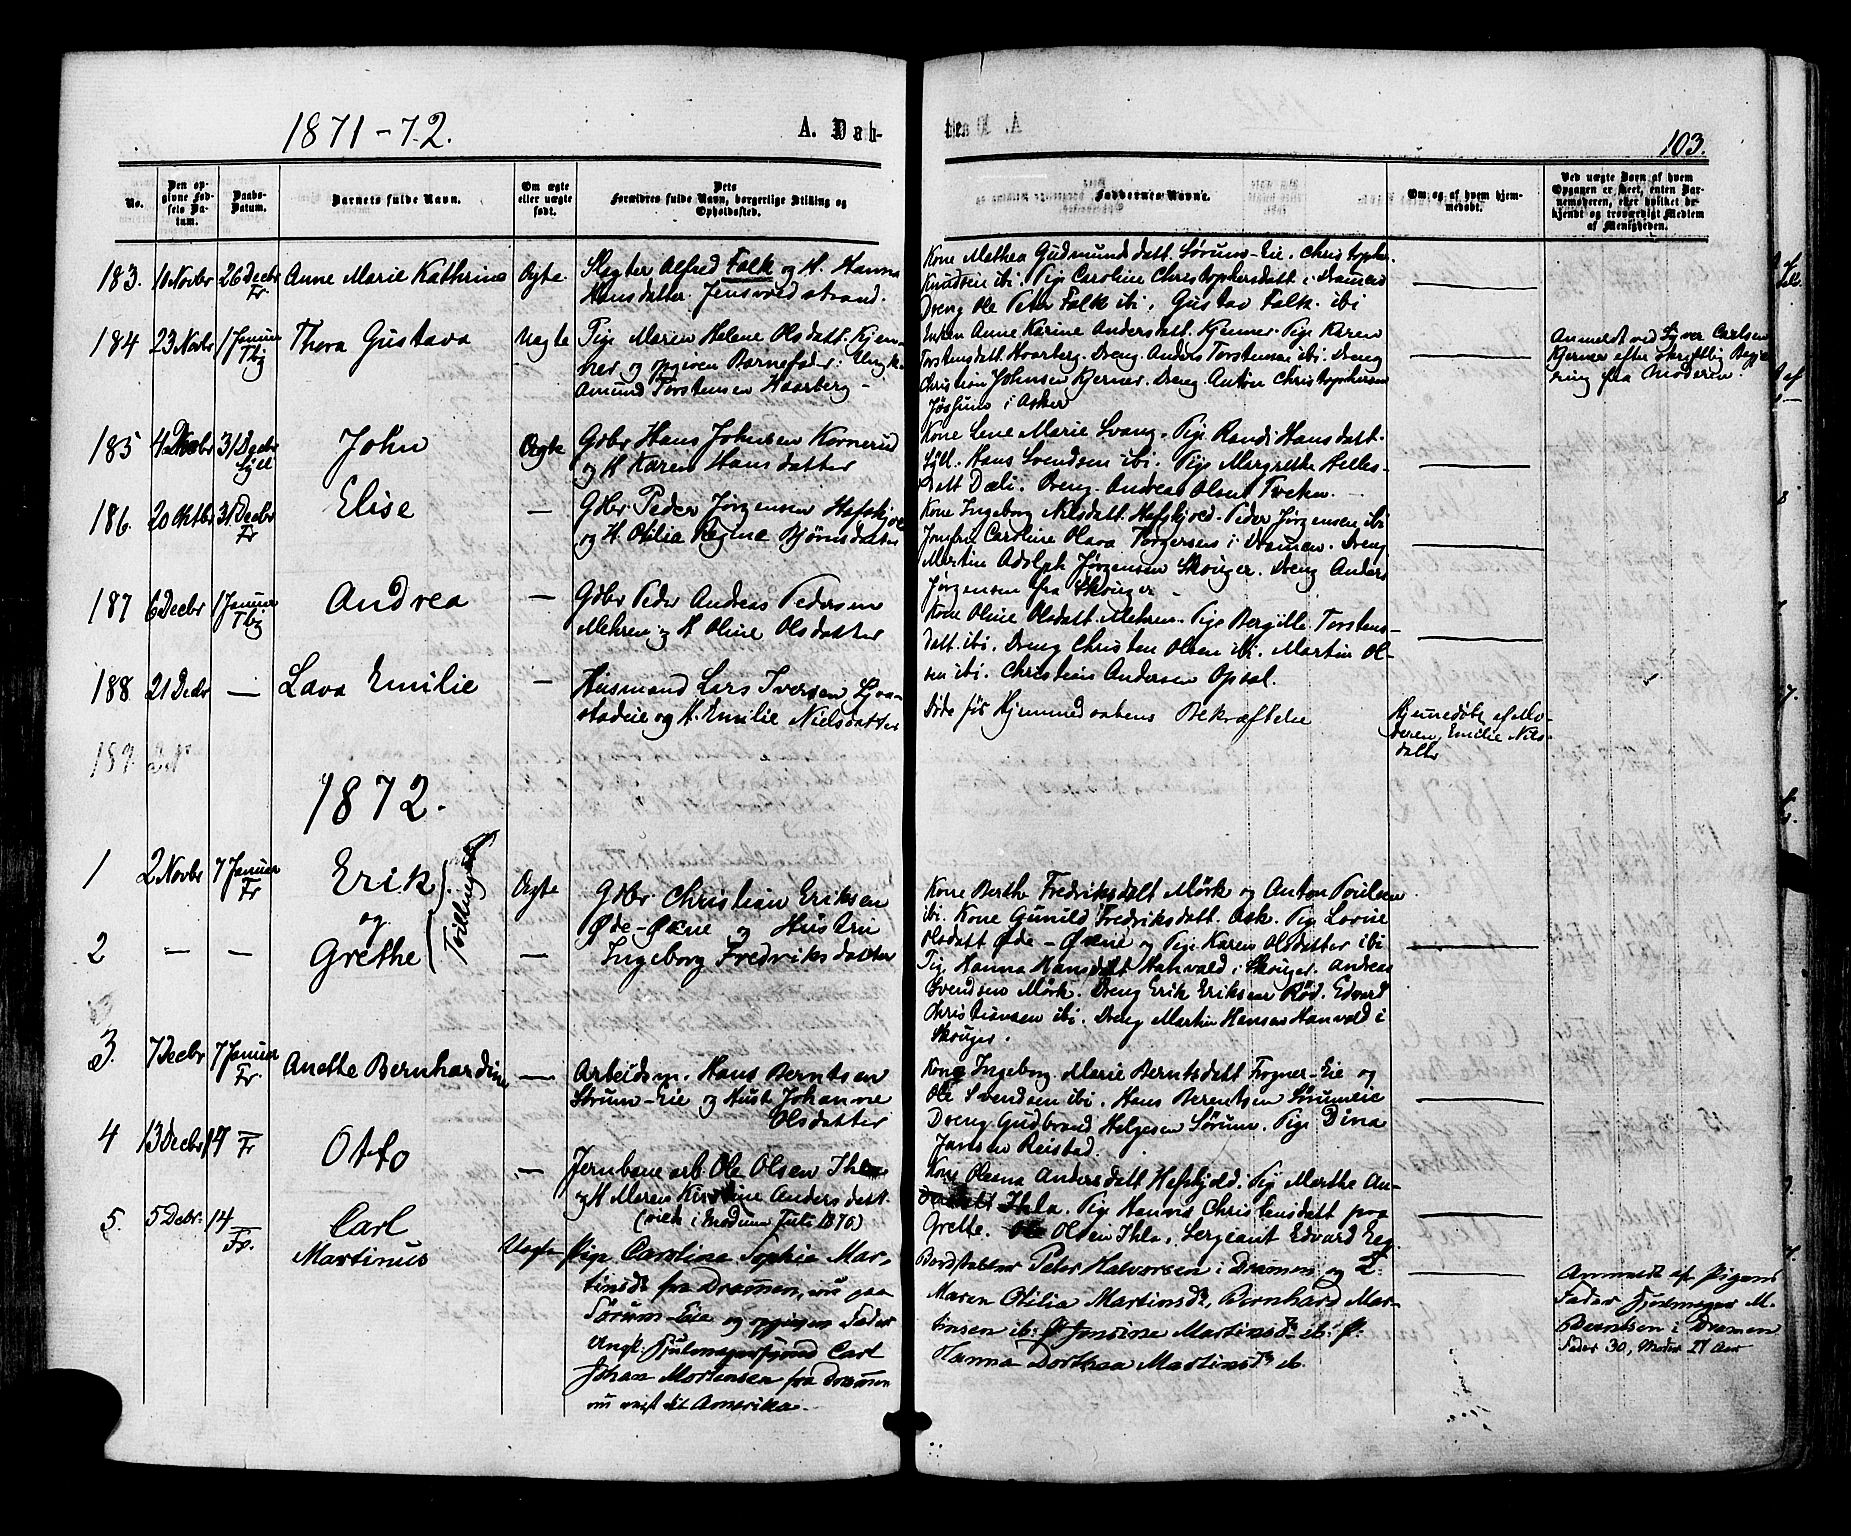 1871-72.
A. Dab-
103.
No.
Den op-
givne Fød-
sels Da-
tum.
Daabs-
Datum.
Barnets fulde Navn.
Om ægte
eller uægte
født.
Dets
Forældres fulde Navn, borgerlige Stilling og
Opholdssted.
Faddernes Navne.
Om og af hvem hjem-
medøbt.
Ved uægte Børn af hvem
Opgaven er skeet, enten Bar-
nemoderen, eller hvilket be-
kjendt og troværdigt Medlem
af Menigheden.
183. 10 Novbr 26 Decbr Fr
Anne Marie Kathrine
Ægte
Slagter Alfred Falk og H. Hanna
Hansdatter. Jensvold strand.
Kone Mathea Gudmundsdatt. Sørum-Eie. Christopher
Knudsen ibi. Pige Caroline Christophersdatt i Dramen
Dreng Ole Peter Falk ibi, Gustav Falk. ibi
184 23 Novbr 1 Januar Tbg
Thora Gustava
Uægte
Pige Maren Helene Olsdatt. Kjen-
ner og opgiven Barnefader: Ungk.
Amund Torstensen Haarberg-
Enken Anne Karine Andersdatt. Kjenner. Pige Karen
Torstensdatt. Haarberg. Dreng Anders Torstensen ibi. Dreng
Christian Johnsen Kjerner. Dreng. Anton Christophersen
i Asker
Anmeldt ved Syver Carlsen
Kjerner efter skriftlig Begjæ
ring fra Moderen.
185 4 Novbr 31 Decbr Syll
John
Ægte
Gdbr Hans Johnsen Kornerud
og H. Karen Hansdatter
Kone Lene Marie Svang. Pige Randi Hansdatt.
Syll. Hans Svendsen ibi. Pige Margrethe Helles-
datt Dæli. Dreng. Andreas Olsen Tveten
186. 20 Oktbr 31 Decbr Fr
Elise
—
Gdbr Peder Jørgensen Hafskjold
og H. Otilia Regine Bjørnsdatter
Kone Ingeborg Nilsdatt. Hafskjold. Peder Jørgensen ibi
Jomfru Caroline Olava Torgersen i Dramen. Dreng
Martin Adolph Jørgensen Skouger. Dreng Anders
Jørgensen fra Skouger -
187 6 Decbr 1 Januar Tbg
Andrea
—
Gdbr Peder Andreas Pedersen
Mehren og H Oline Olsdatter
Kone Oline Olsdatt. Mehren. Pige Bergitte Torstens-
datt. ibi. Dreng Christen Olsen ibi. Martin Ol-
sen ibi. Christian Andersen Opsal.
188 21 Decbr —
Lava Emilie
—
Husmand Lars Iversen
og H. Emilie Nielsdatter
Døde før Hjemmedaabens Bekræftelse
Hjemedøbt af Mo-
deren, Emilie Nils-
datter
189.
1872.
1 2 Novbr 7 Januar Fr
Erik
og
Ægte
Gdbr Christian Eriksen
Øde-Økne og Hustru
Ingeborg Fredriksdatter
2 — —
Grethe
Tvillinger
—
Kone Berthe Fredriksdatt Mörk og Anton Poulsen
ibi. Kone Gunild Fredriksdatt. Ask. Pige Lovise
Olsdatt Øde-Økne og Pige Karen Olsdatter ibi
Pig. Hanna Hansdatt Hanvald i Skouger. Andreas
Svendsen Mörk. Dreng Erik Eriksen Rød. Edvard
Christiansen ibi. Dreng Martin Hansen Hanvald i
Skouger.
3. 7 Decbr 7 Januar Fr
Anette Bernhardine
—
Arbeidsm. Hans Berntsen
Sørum-Eie og Hustr Johanne
Olsdatter
Kone Ingeborg Marie Berntsdatt Fogner-Eie og
Ole Svendsen ibi. Hans Berentsen Sørumeie
Dreng Gudbrand Helgesen Sørum. Pige Dina
Jansen Reistad.
4 13 Decbr 14 — Fr
Otto
—
Jernbane arb. Ole Olsen Ihle
og H Maren Kirstine Andersdatt.
(viet i Modum Juli 1870)
Kone Olena Andersdatt Hafskjold. Pig Marthe An-
dersdatt Ihle. Pige Hanvis Christensdatt paa
Grette. Ole Olsen Ihle. Sergeant Edvard Eeg
5. 5 Debr: 14 — Fr.
Carl
Martinus
Uægte
Pige Caroline Sophie Mar-
tinsdr fra Drammen, nu paa
Sørum-Eie og opgiven Fader
Ungk. Hjulmagersvend Carl
Johan Mortensen fra Drammen
nu reist til Amerika.
Peter Halvorsen i Drammen og
Maren Otilia Martinsdr, Bernhard Mar-
tinsen ib: P. Jensine Martinsdr ib. P.
Hanna Dorthea Martinsdr ib.
Anmeldt af Pigens
Fader Hjulmager M.
Berntsen i Dramen
Fader 30, Moder 21 Aar